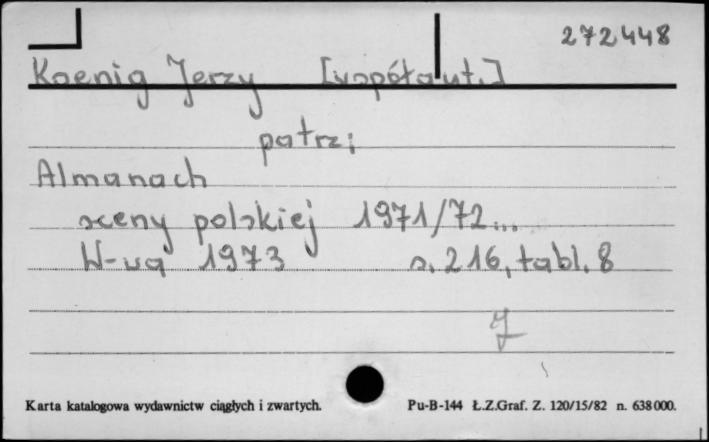 272448
Koenig Jerzy [współaut.]
patrz:
Almanach
sceny polskiej 1971/72...
W-wa 1973 s. 216, tabl. 8
Karta katalogowa wydawnictw ciągłych i zwartych. Pu-B-144 Ł.Z.Graf. Z. 120/15/82 n. 638000.